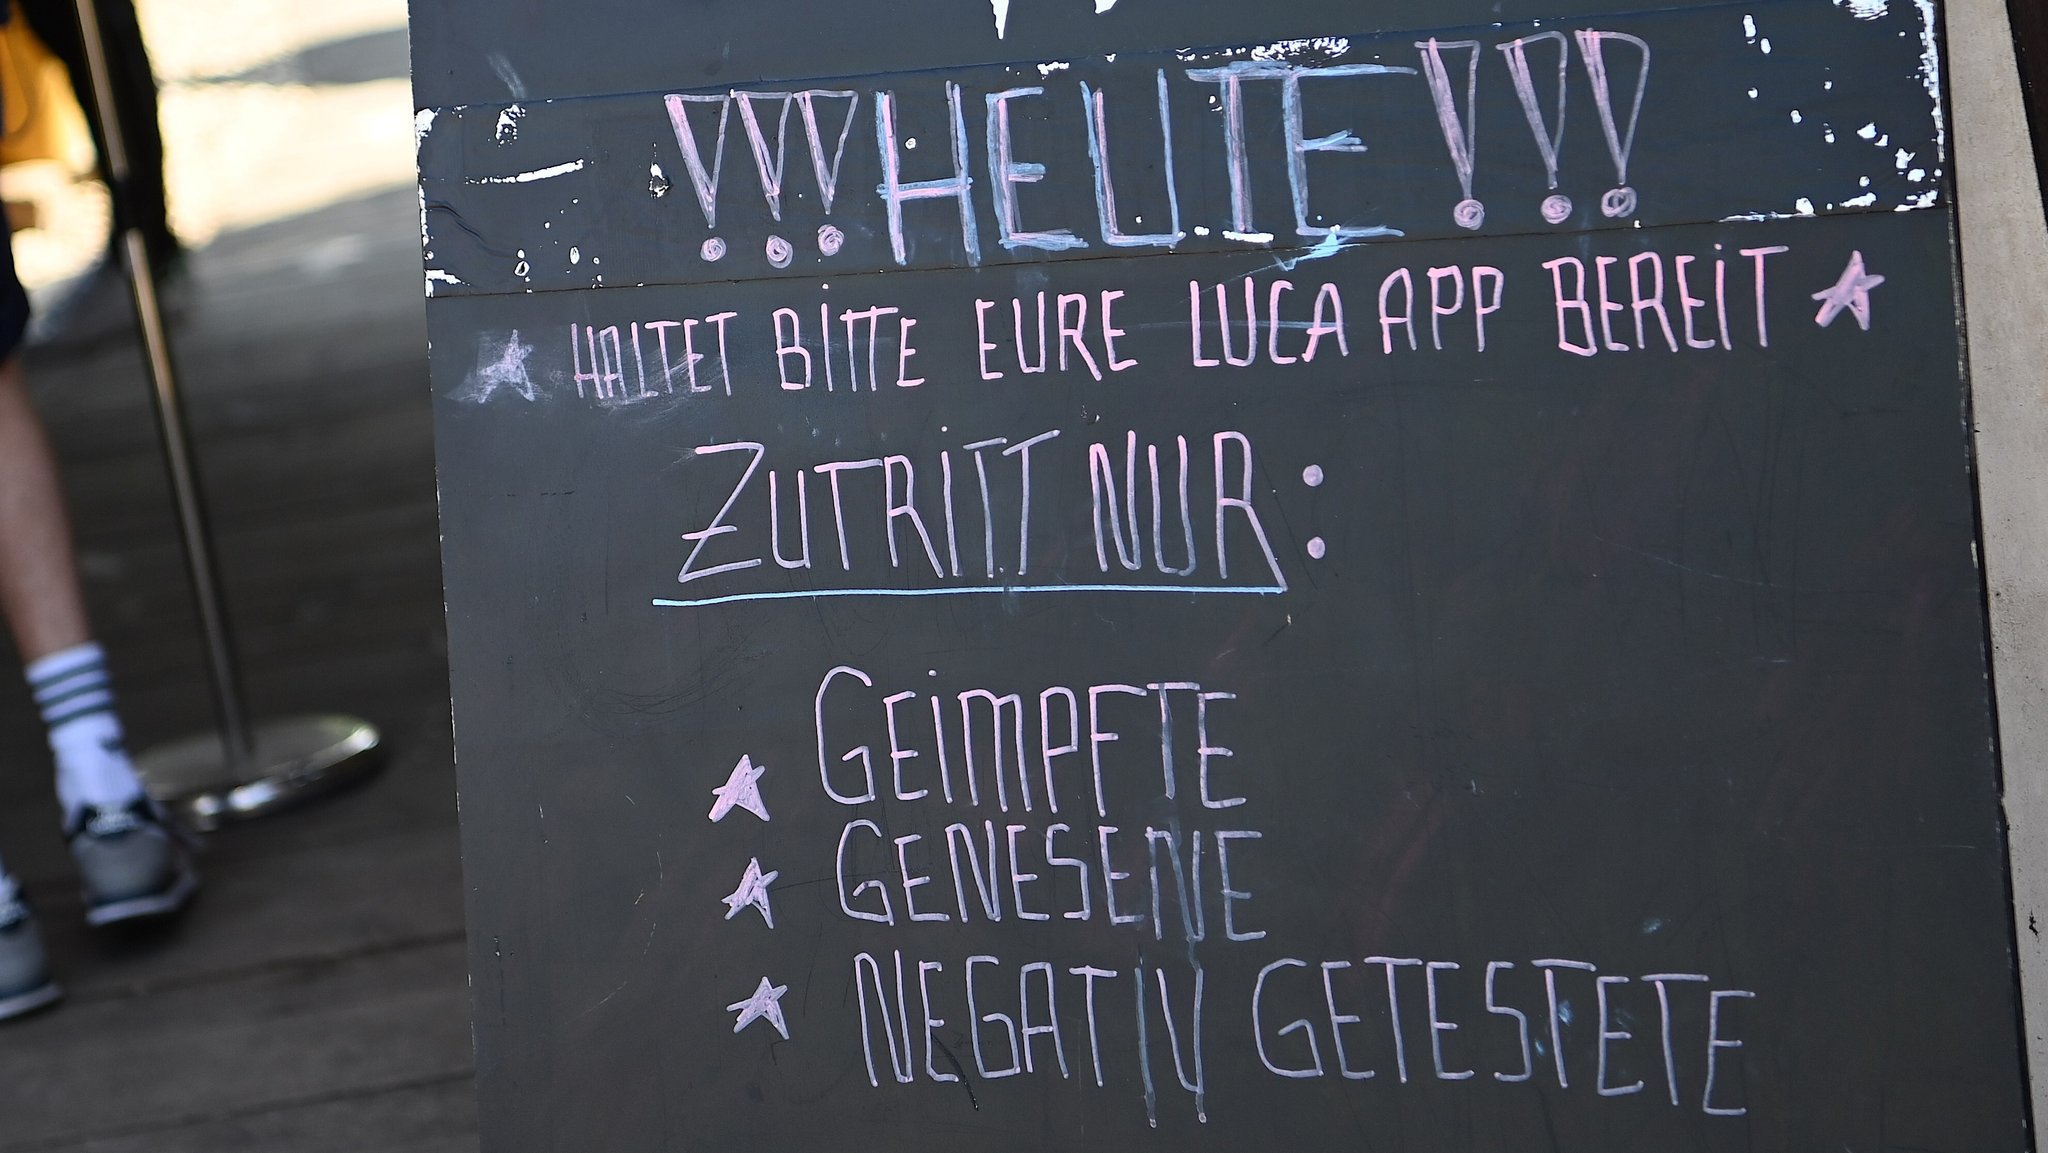 !!! HEUTE !!!
HALTET BITTE EURE LUCA APP BEREIT
ZUTRITT NUR:
GEIMPFTE
GENESENE
NEGATIV GETESTETE